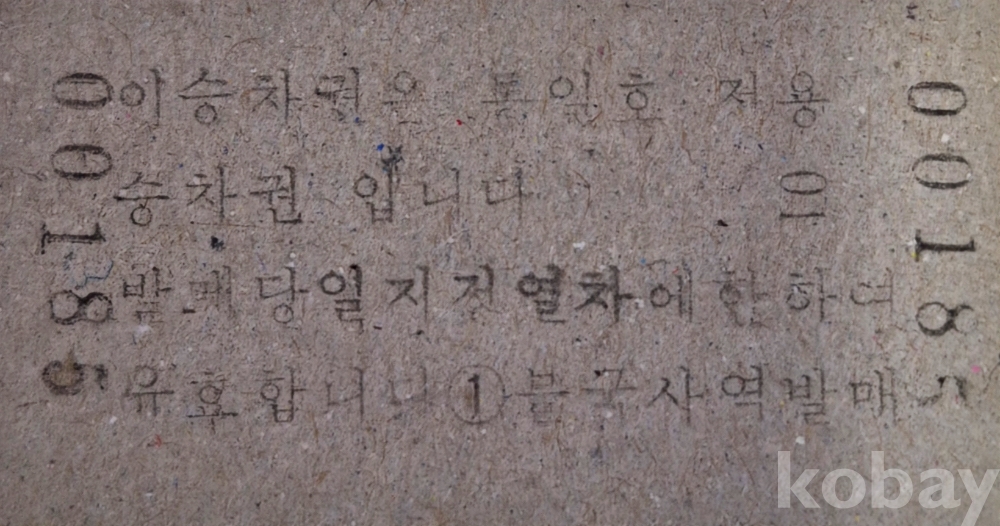 이승차권은 통일호 전용
승차권 입니다 10
발매당일지정열차에 한하여
유효합니다 ① 사역발매
0018
0018
kobay